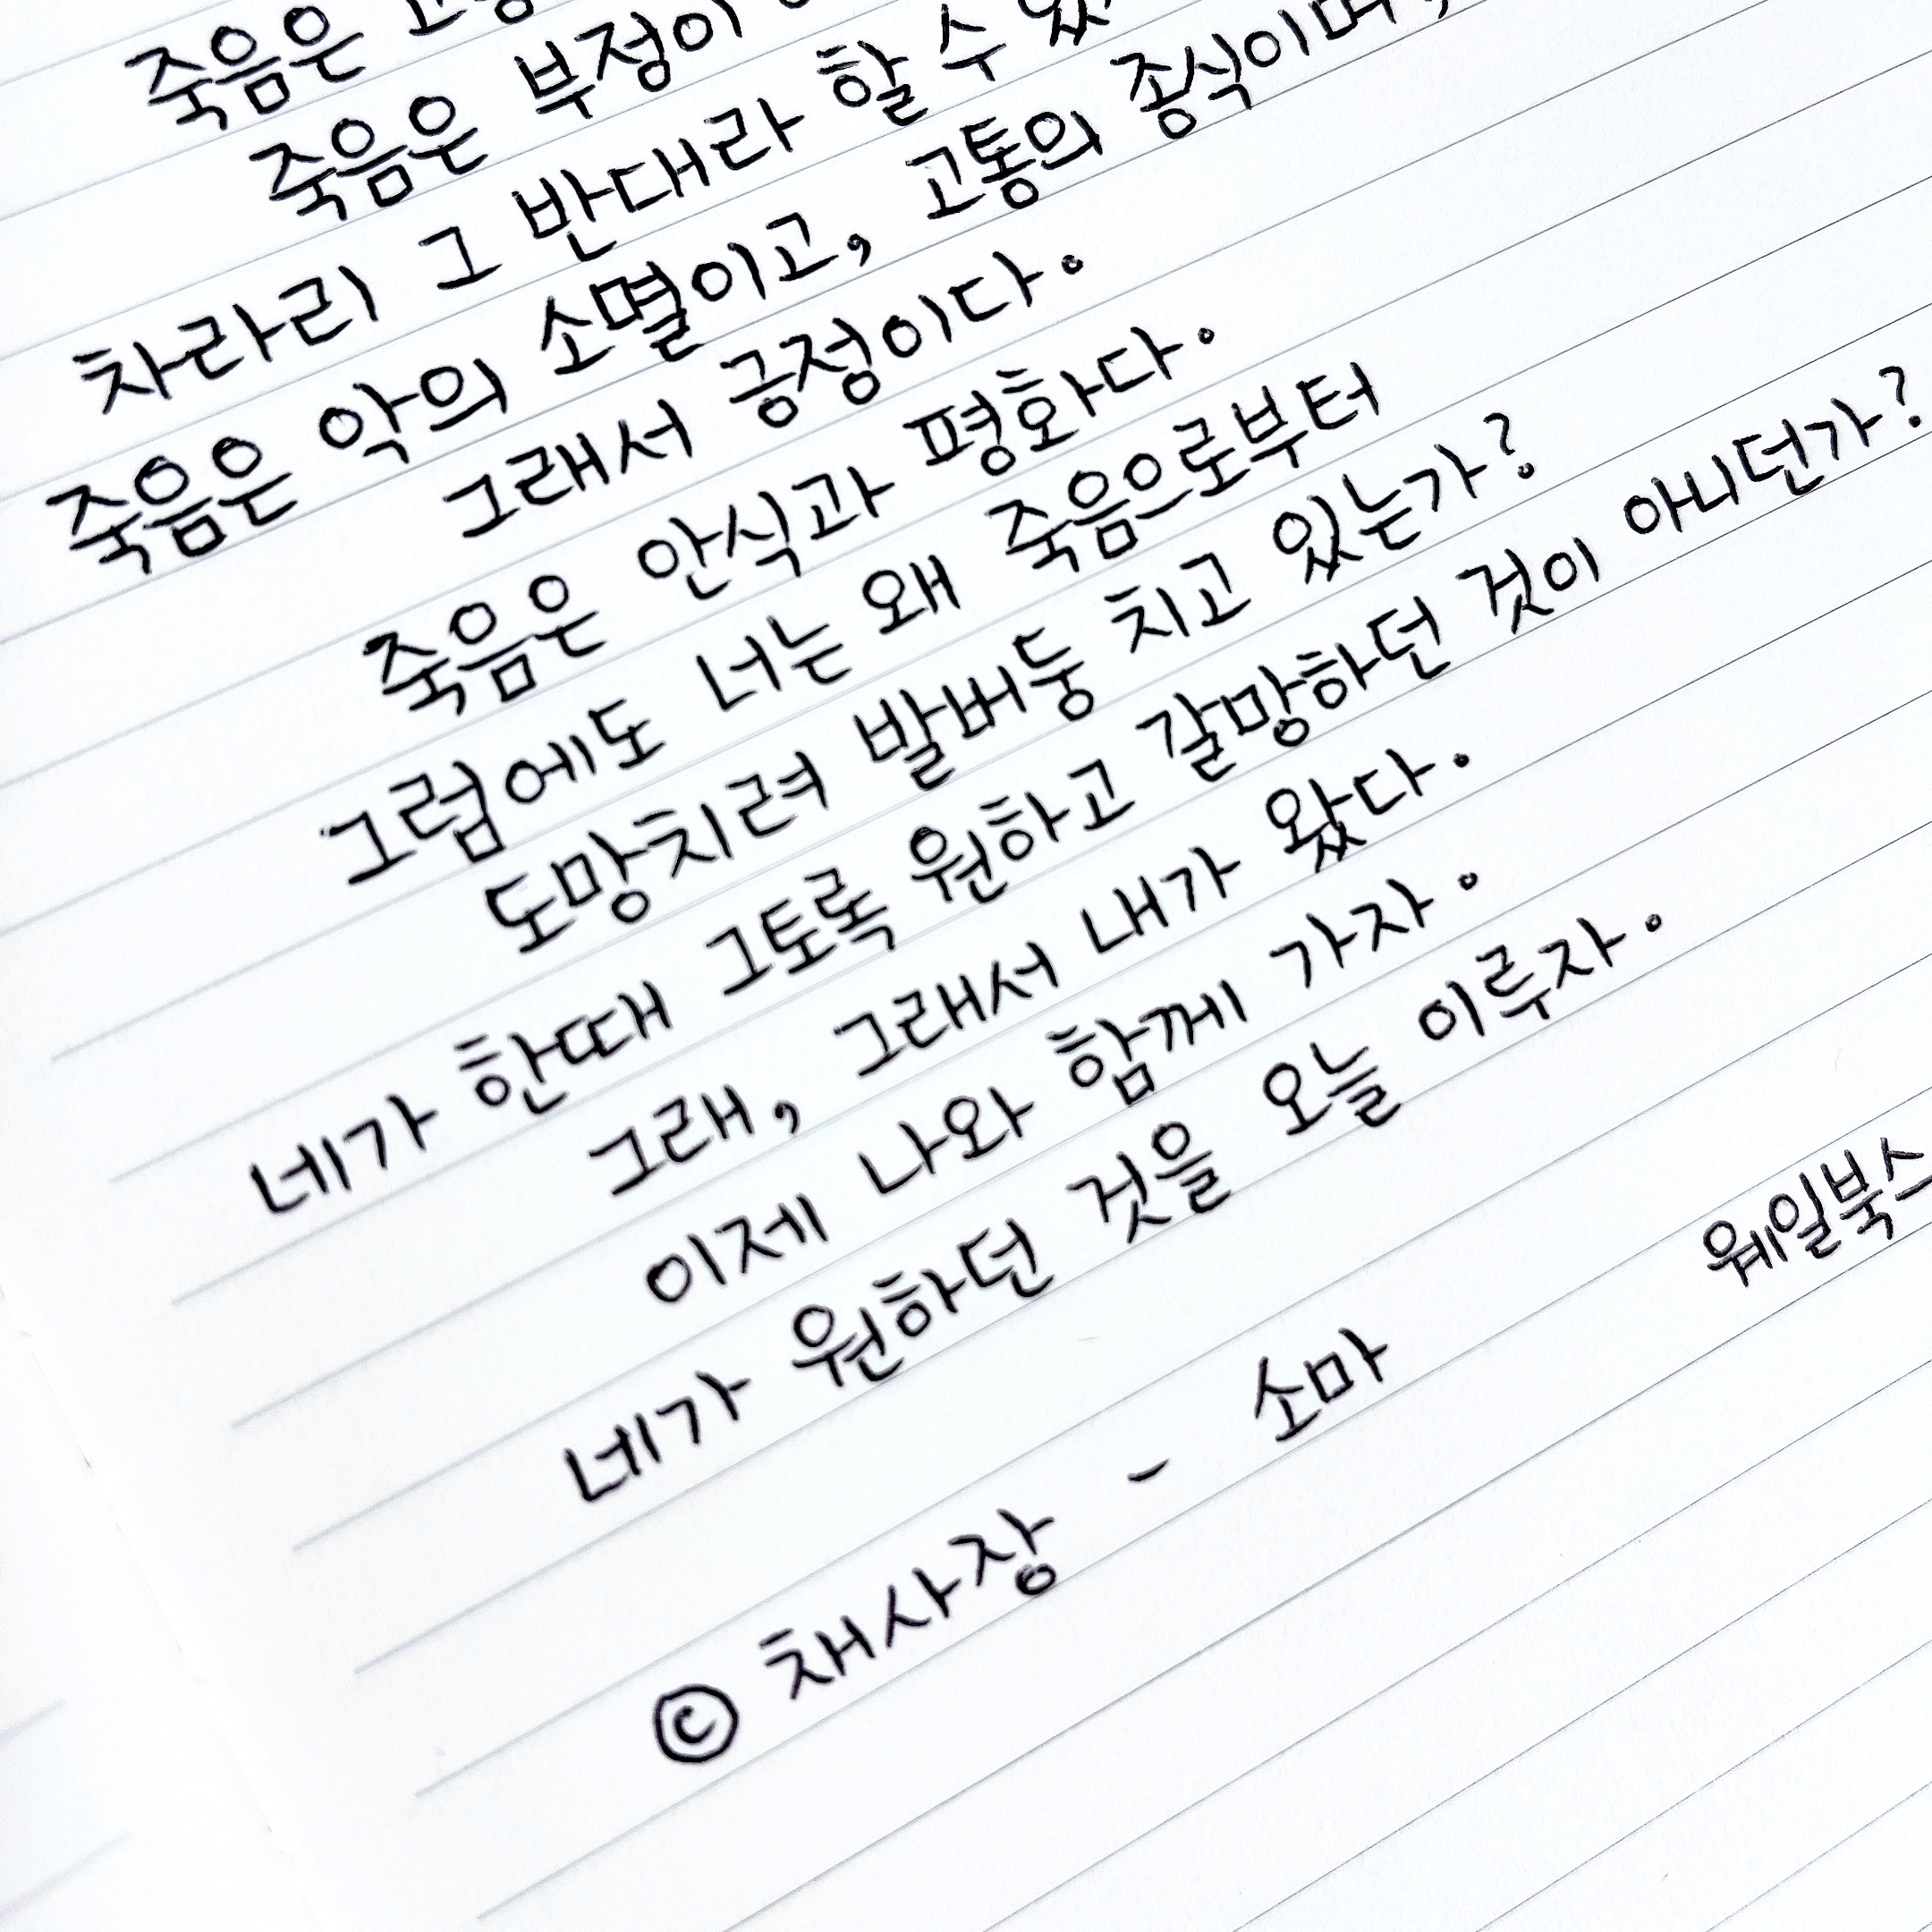 죽음은
죽음은 부정이
차라리 그 반대라 할 수 있
죽음은 악의 소멸이고, 고통의 종식이며,
그래서 긍정이다.
죽음은 안식과 평화다.
그럼에도 너는 왜 죽음으로부터
도망치려 발버둥 치고 있는가?
네가 한때 그토록 원하고 갈망하던 것이 아니던가?
그래, 그래서 내가 왔다.
이제 나와 함께 가자.
네가 원하던 것을 오늘 이루자.
웨일북스
© 채사장 - 소마